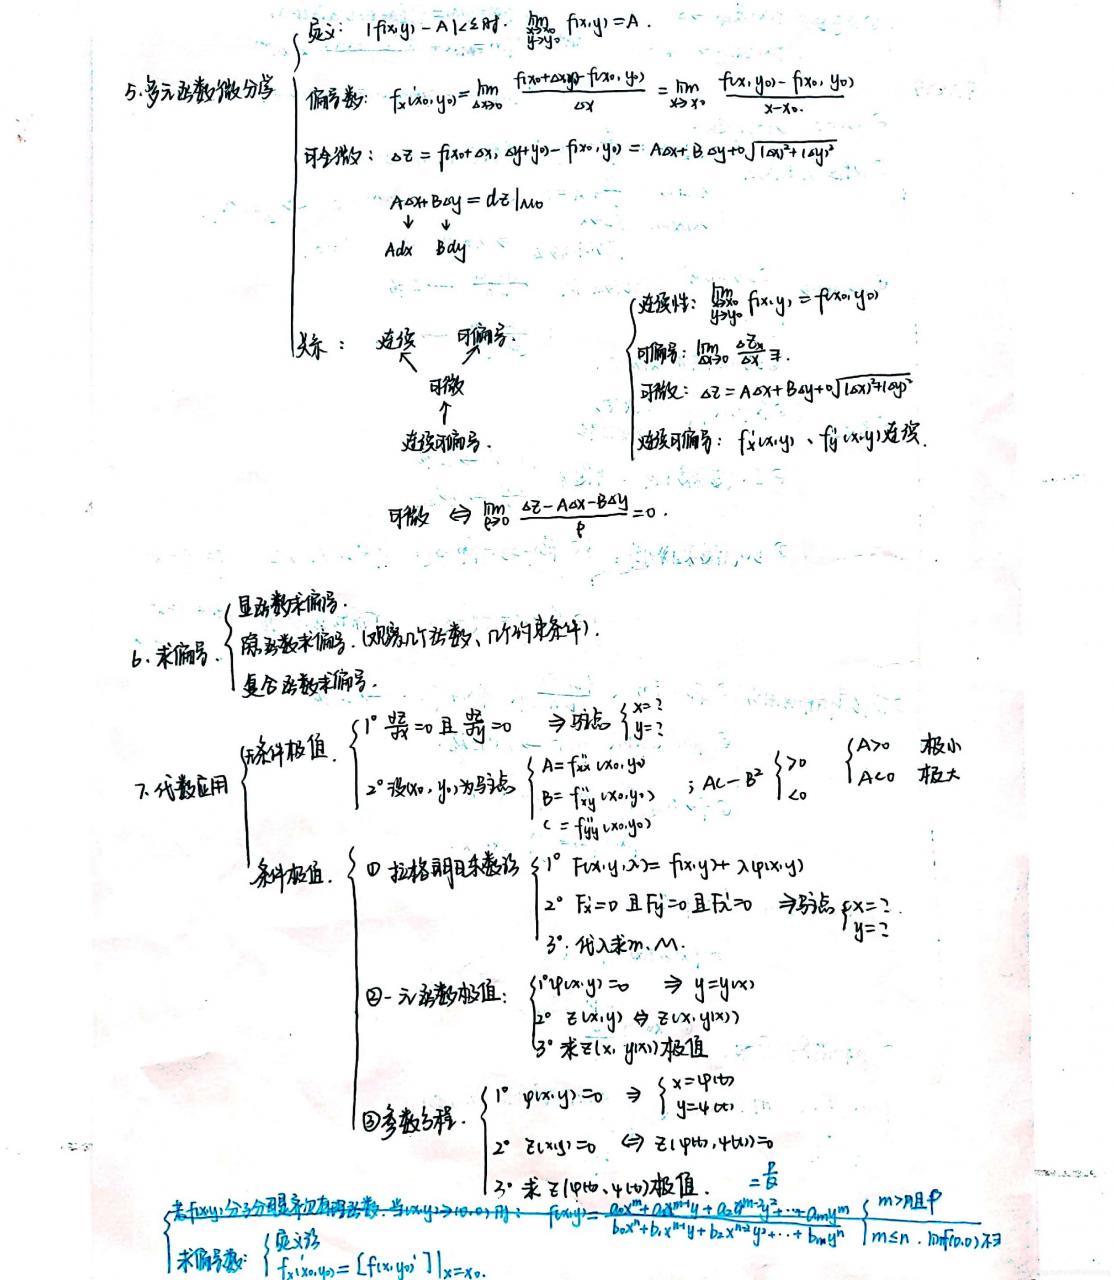 5. 多元函数微分学
定义: |f(x,y) - A| < ε 时. lim x→x0 y→y0 f(x,y) = A.
偏导数: f'x(x0,y0) = lim Δx→0 (f(x0+Δx,y0) - f(x0,y0))/Δx = lim x→x0 (f(x,y0) - f(x0,y0))/(x-x0).
可全微: Δz = f(x0+Δx, Δy+y0) - f(x0,y0) = AΔx + BΔy + o√((Δx)²+(Δy)²)
AΔx + BΔy = dz|M0
↓ ↓
Adx Bdy
关系: 连续 可偏导.
可微
连续可偏导.
连续性: lim x→x0 y→y0 f(x,y) = f(x0,y0)
可偏导: lim Δx→0 Δzx/Δx ∃.
可微: Δz = AΔx + BΔy + o√((Δx)²+(Δy)²)
连续可偏导: f'x(x,y)、f'y(x,y)连续.
可微 ⇔ lim ρ→0 (Δz-AΔx-BΔy)/ρ = 0.
6. 求偏导.
显函数求偏导.
隐函数求偏导. (观察几个函数、几个约束条件).
复合函数求偏导.
7. 代数应用
无条件极值.
1° ∂z/∂x = 0 且 ∂z/∂y = 0 ⇒ 驻点 { x=? y=?
2° 设(x0,y0)为驻点 { A = f''xx(x0,y0)
B = f''xy(x0,y0)
C = f''yy(x0,y0)
; AC - B² { >0 <0 { A>0 极小
A<0 极大
条件极值.
① 拉格朗日乘数法 { 1° F(x,y,λ) = f(x,y) + λφ(x,y)
2° F'x=0 且 F'y=0 且 F'λ=0 ⇒ 驻点 { x=? y=?
3°. 代入求m、M.
② 一元函数极值: { 1° φ(x,y)=0 ⇒ y=y(x)
2° z(x,y) ⇔ z(x,y(x))
3° 求z(x,y(x))极值
③ 参数方程. { 1° φ(x,y)=0 ⇒ { x=φ(t) y=ψ(t).
2° z(x,y)=0 ⇔ z(φ(t),ψ(t))=0
3° 求 z(φ(t)、ψ(t))极值.
= P/Q
若f(x,y)分子分母 当(x,y)→(0,0)时: f(x,y) = (a0x^m + a1x^(m-1)y + a2x^(m-2)y² + … + amy^m)/(b0x^n + b1x^(n-1)y + b2x^(n-2)y² + … + bny^n) { m>n且
m≤n.
求偏导数: { 定义法
f'x(x0,y0) = [f(x,y0)']|x=x0.